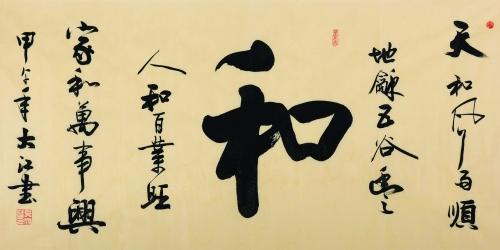 天和风雨順
地龢五谷豐
和
人和百業旺
家和萬事興
甲午年大江書